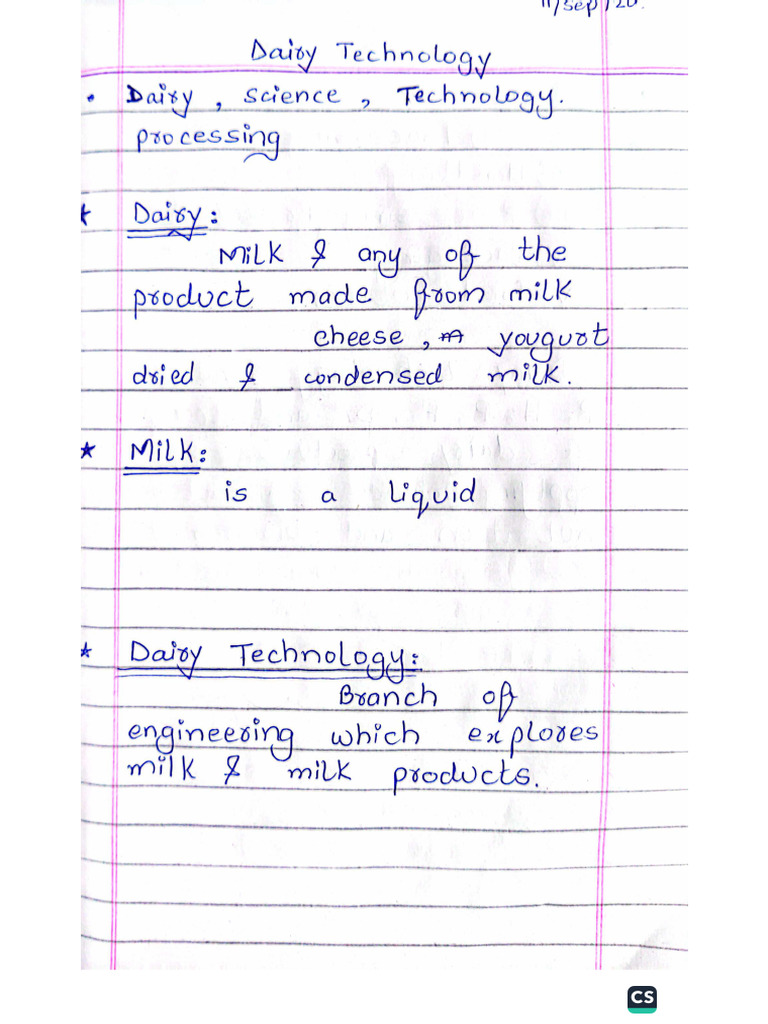 11/Sep/20.
Dairy Technology
• Dairy, Science, Technology.
processing
* Dairy:
Milk & any of the
product made from milk
cheese, yougurt
dried & condensed milk.
* Milk:
is a liquid
* Dairy Technology:
Branch of
engineering which explores
milk & milk products.
CS